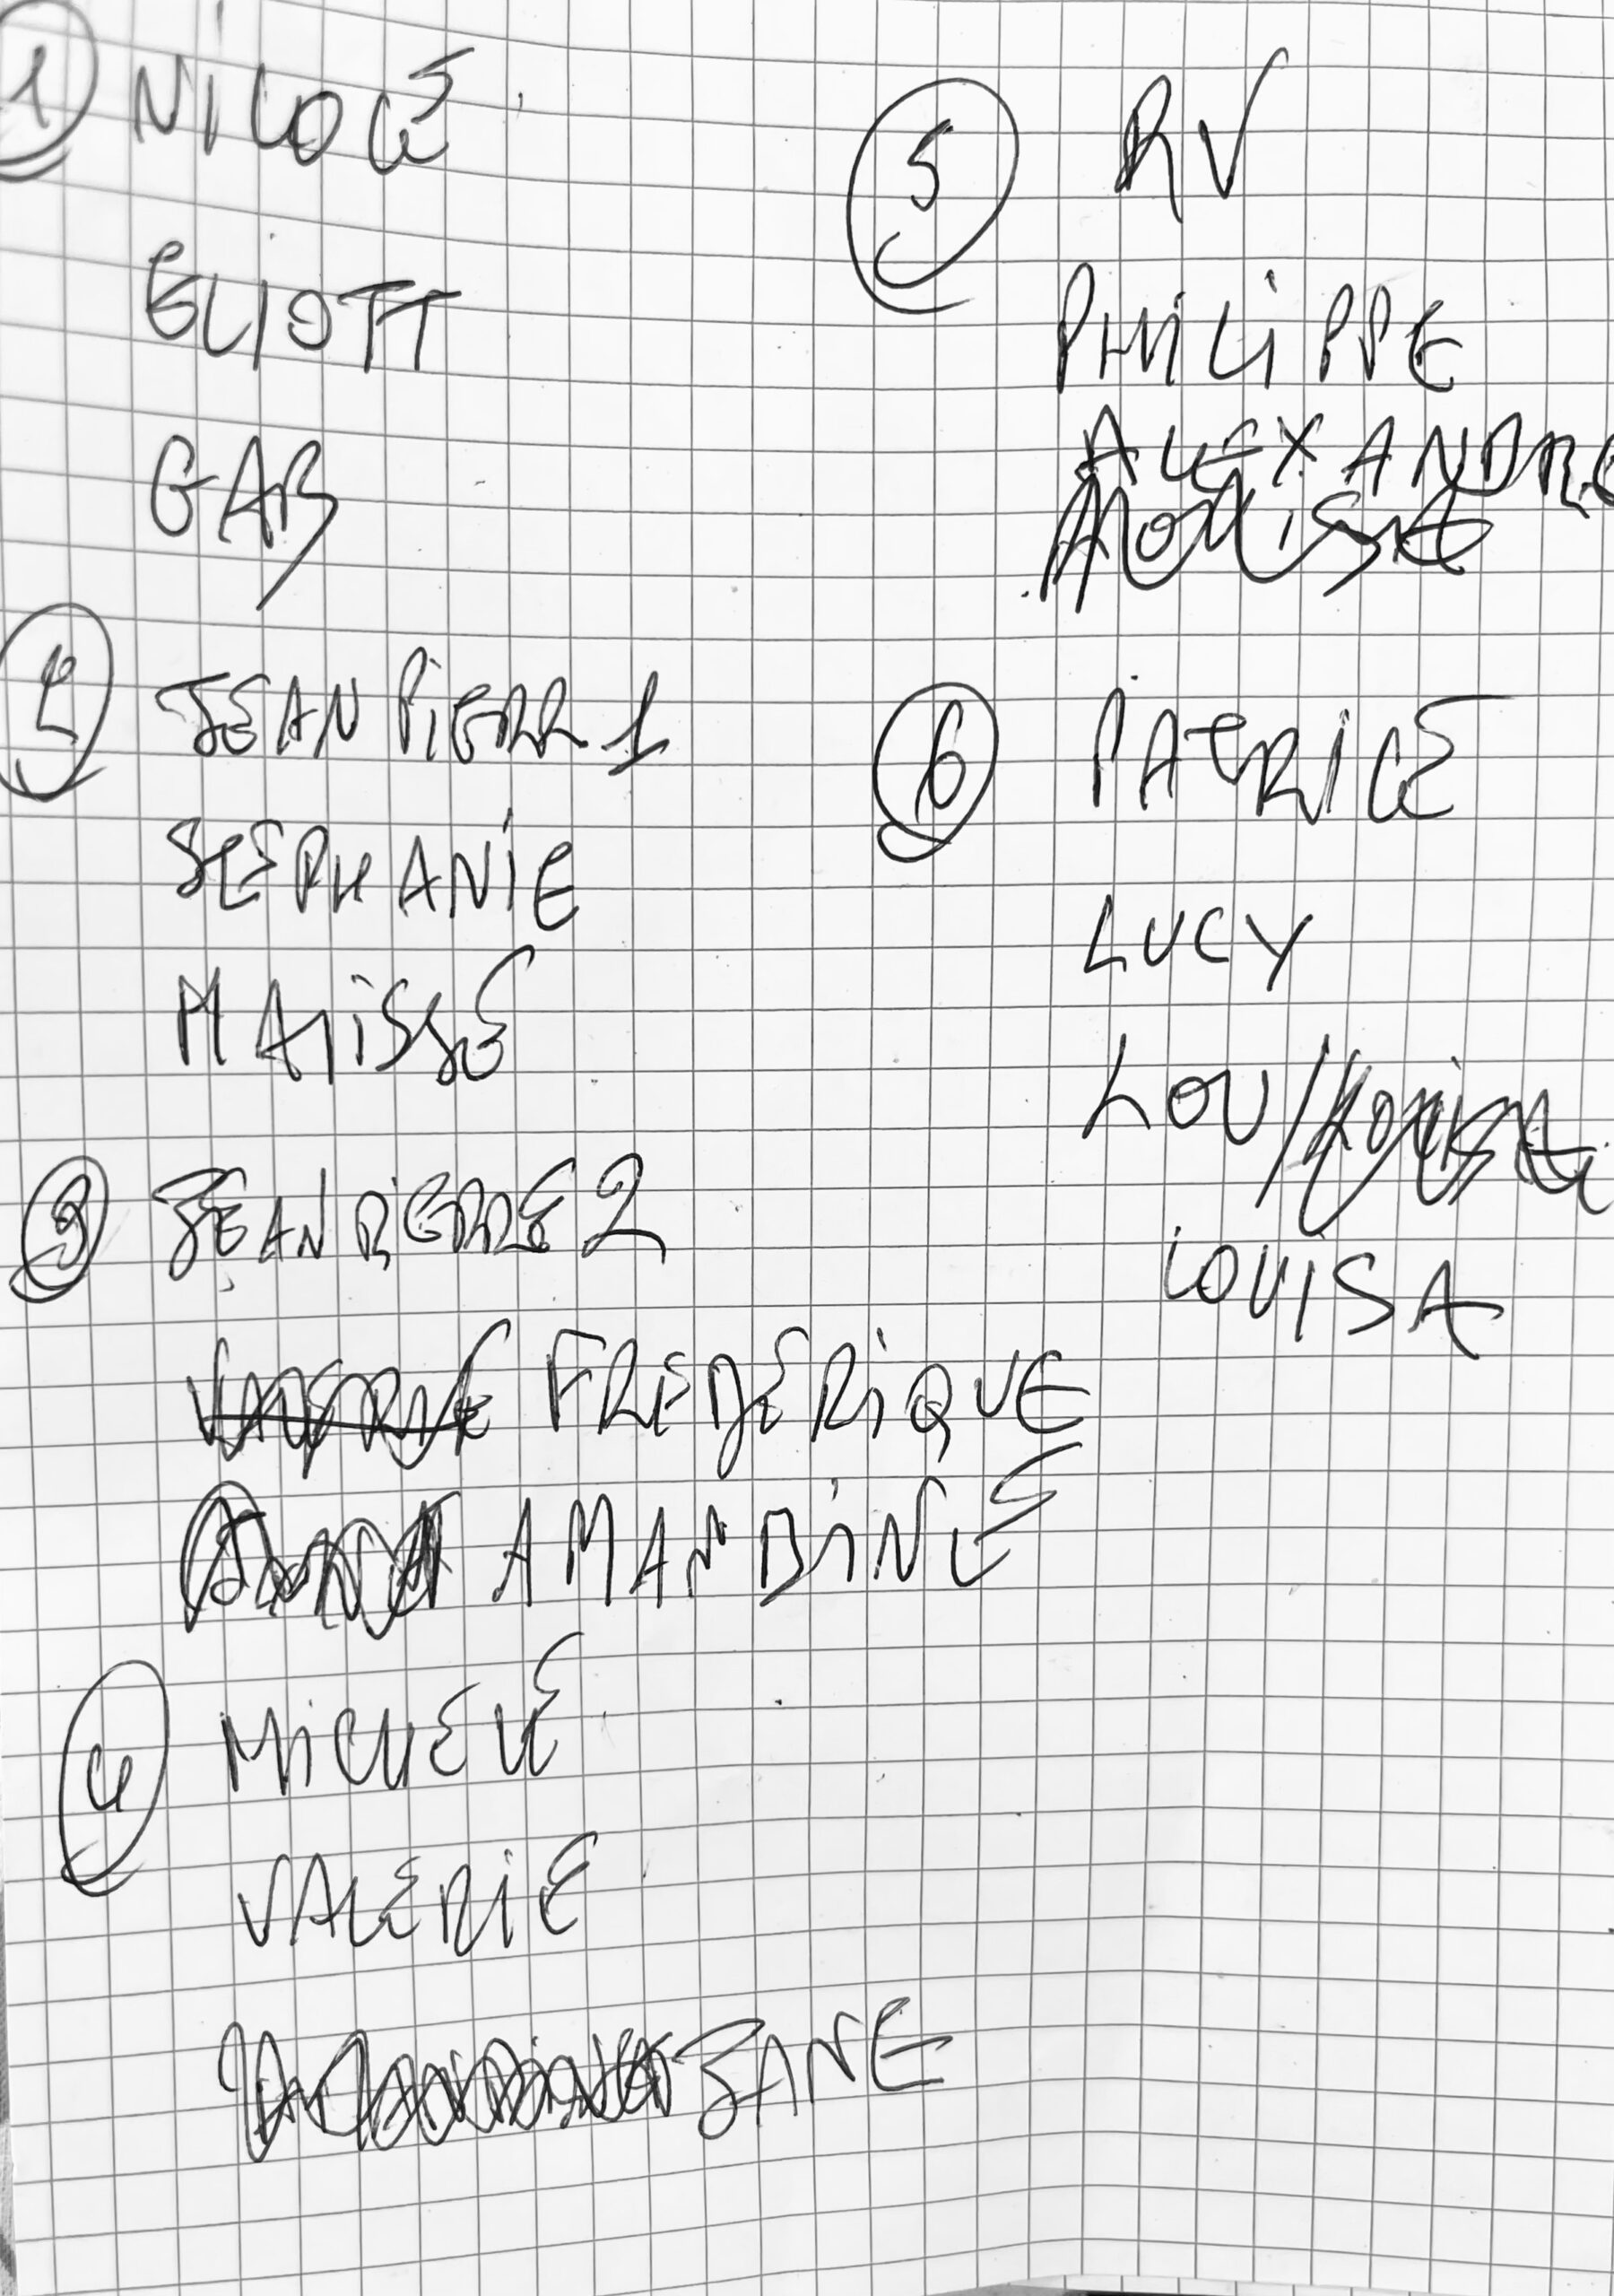 1 NICOLE
ELIOTT
GAB
2 JEAN PIERR 1
STEPHANIE
MATISSE
3 JEAN PIERRE 2
VALERIE FREDERIQUE
AMANDINE
4 MICHELE
VALERIE
JANE
5 RV
PHILIPPE
ALEXANDRE
6 PATRICE
LUCY
LOU/
LOUISA